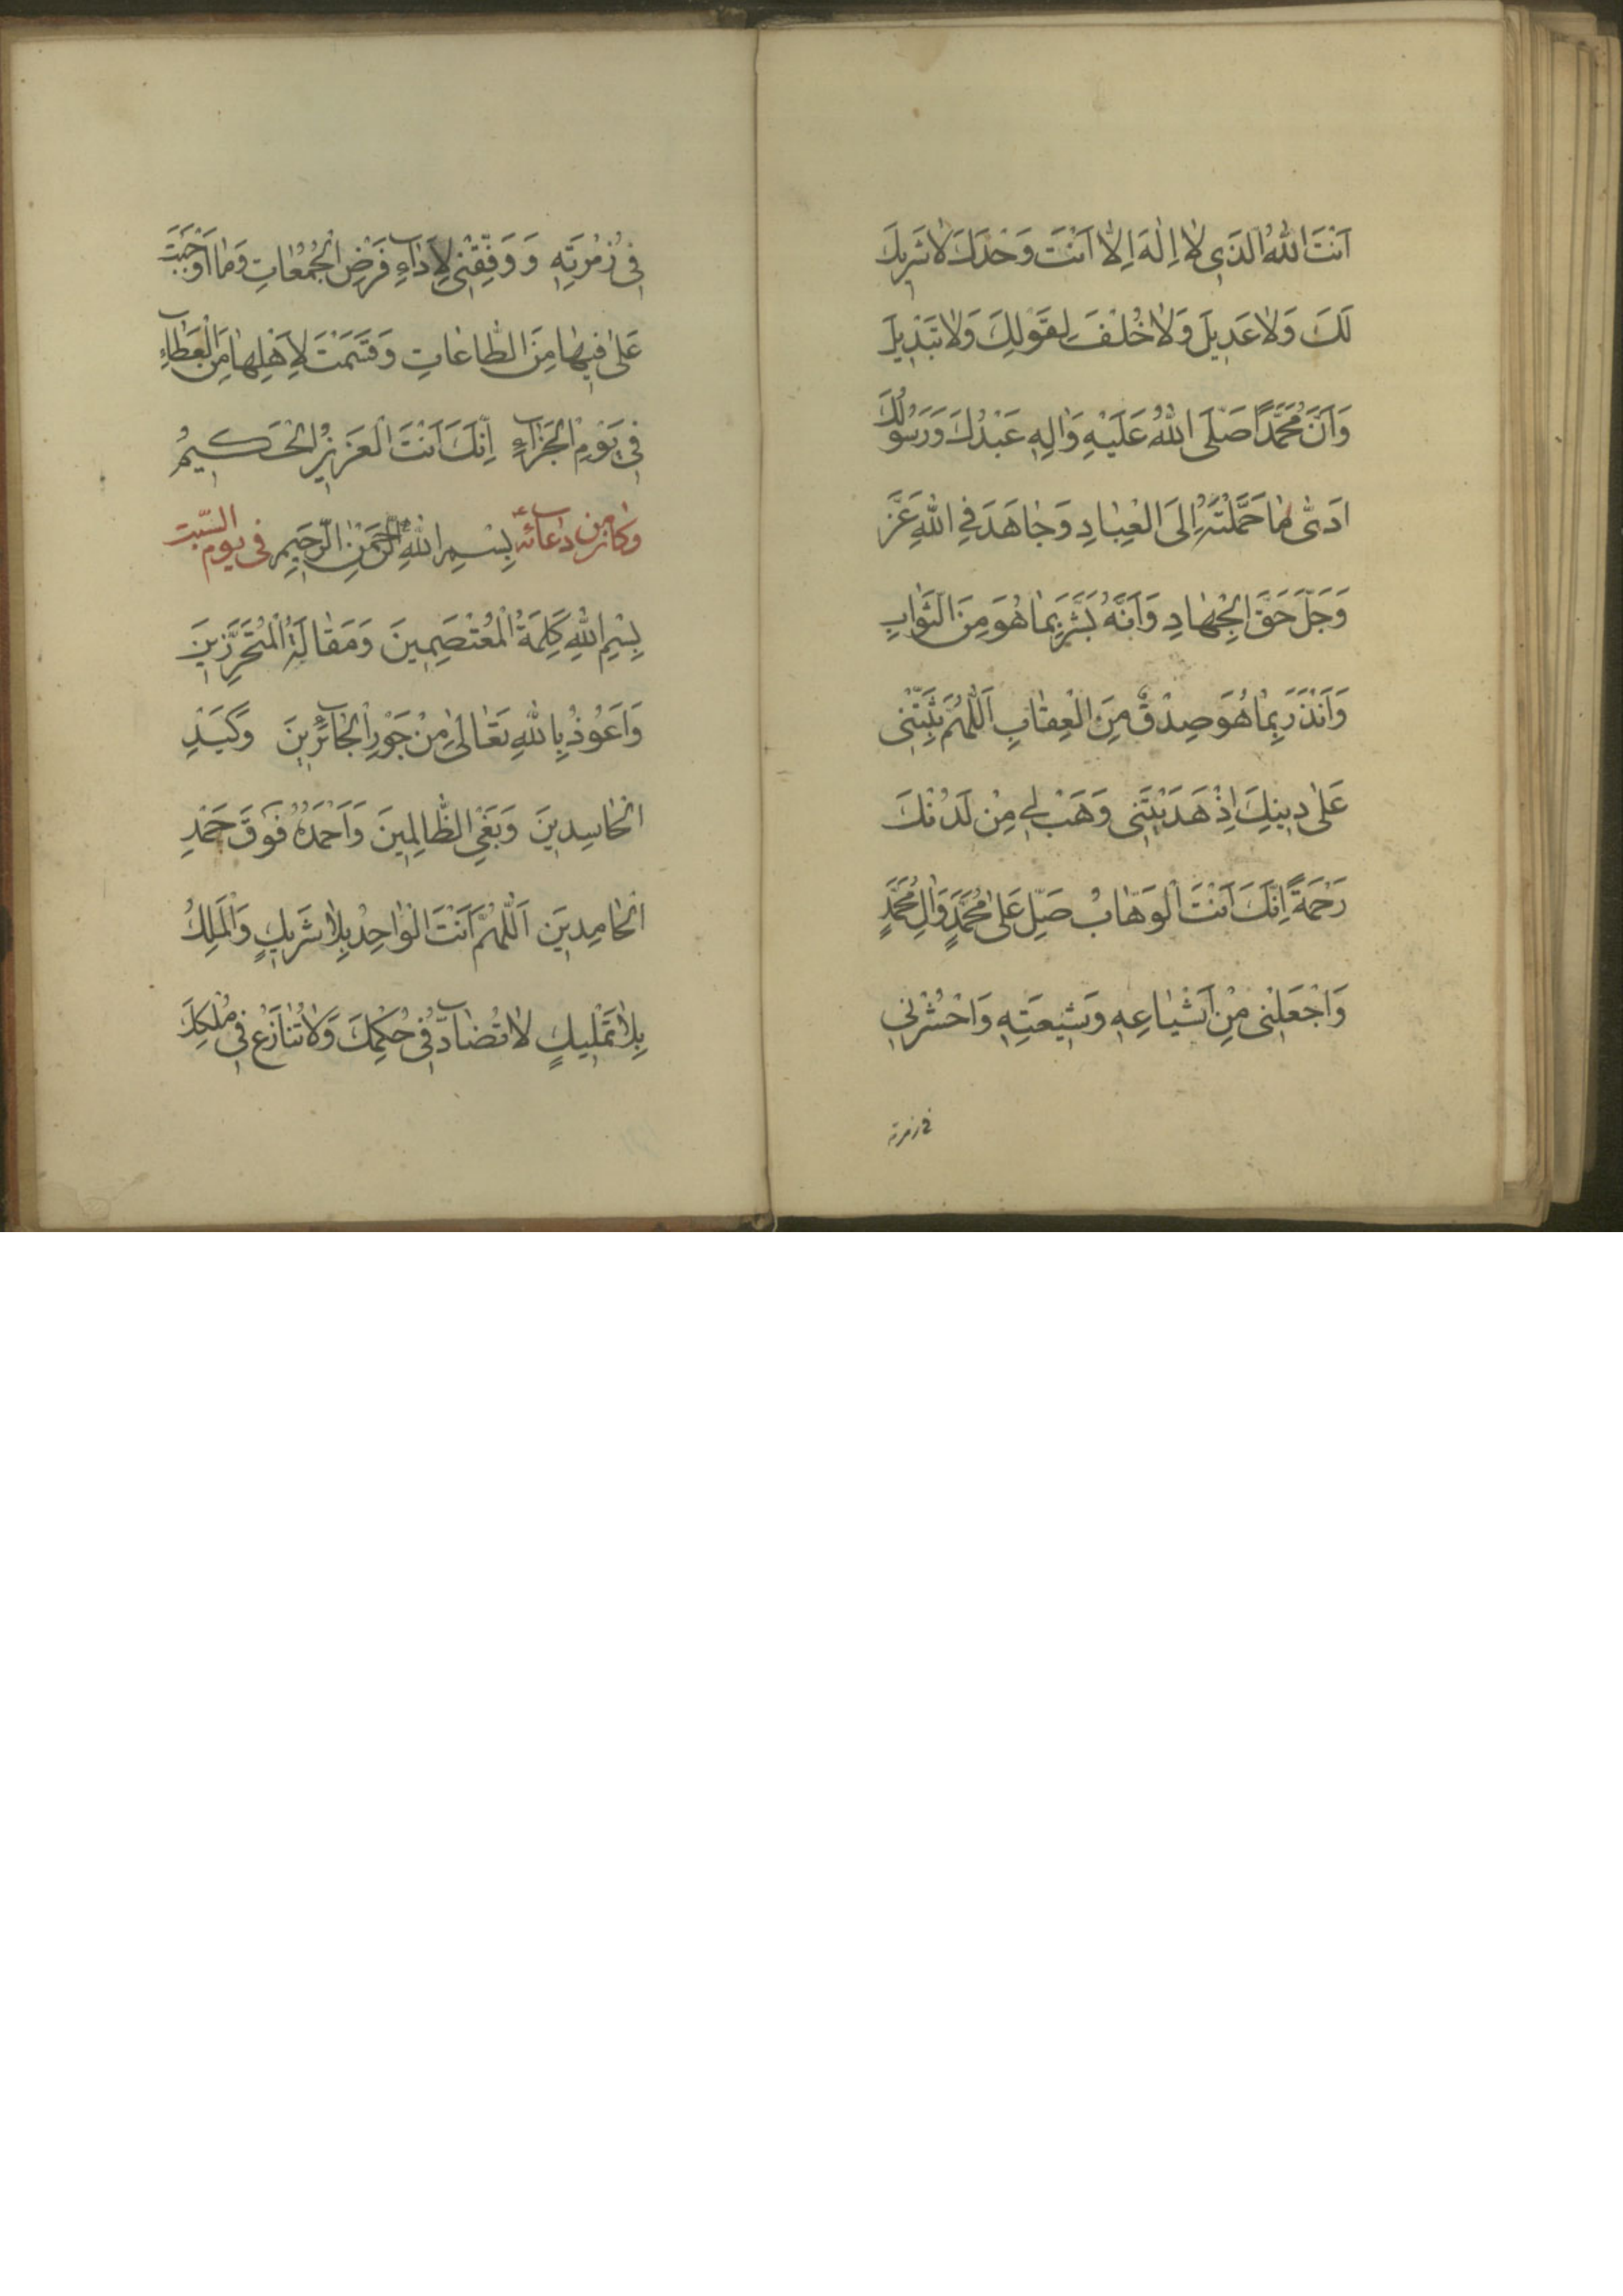 اَنْتَ اللّٰهُ الَّذِي لاٰ اِلٰهَ اِلاّٰ اَنْتَ وَحْدَكَ لاٰ شَرِيكَ
لَكَ وَلاٰ عَدِيلَ وَلاٰ خُلْفَ لِقَوْلِكَ وَلاٰ تَبْدِيلَ
وَاَنَّ مُحَمَّداً صَلَّى اللّٰهُ عَلَيْهِ وَاٰلِهِ عَبْدُكَ وَرَسُولُكَ
ادَّىٰ مٰا حَمَّلْتَهُ اِلَى الْعِبٰادِ وَجٰاهَدَ فِي اللّٰهِ عَزَّ
وَجَلَّ حَقَّ الْجِهٰادِ وَاَنَّهُ بَشَّرَ بِمٰا هُوَ مِنَ الثَّوٰابِ
وَاَنْذَرَ بِمٰا هُوَ صِدْقٌ مِنَ الْعِقٰابِ اَللّٰهُمَّ ثَبِّتْنِى
عَلىٰ دِينِكَ اِذْ هَدَيْتَنِى وَهَبْ لِي مِنْ لَدُنْكَ
رَحْمَةً اِنَّكَ اَنْتَ الْوَهّٰابُ صَلِّ عَلىٰ مُحَمَّدٍ وَاٰلِ مُحَمَّدٍ
وَاجْعَلْنِى مِنْ اَشْيٰاعِهِ وَشِيعَتِهِ وَاحْشُرْنِي
في زمرته
فِي زُمْرَتِهِ وَ وَفِّقْنِى لِاَدٰآءِ فَرْضِ الْجُمُعٰاتِ وَمٰا اَوْجَبْتَ
عَلَىَّ فِيهٰا مِنَ الطّٰاعٰاتِ وَقَسَمْتَ لِاَهْلِهٰا مِنَ الْعَطٰآءِ
فِي يَوْمِ الْجَزٰآءِ اِنَّكَ اَنْتَ الْعَزِيزُ الْحَكِيمُ
وكان من دعائه بِسْمِ اللّٰهِ الرَّحْمٰنِ الرَّحِيمِ فى يوم السّبت
بِسْمِ اللّٰهِ كَلِمَةُ الْمُعْتَصِمِينَ وَمَقٰالَةُ الْمُتَحَرِّزِينَ
وَاَعُوذُ بِاللّٰهِ تَعٰالىٰ مِنْ جَوْرِ الْجٰآئِرِينَ وَكَيْدِ
الْحٰاسِدِينَ وَبَغْىِ الظّٰالِمِينَ وَاَحْمَدُهُ فَوْقَ حَمْدِ
الْحٰامِدِينَ اَللّٰهُمَّ اَنْتَ الْوٰاحِدُ بِلاٰ شَرِيكٍ وَالْمَلِكُ
بِلاٰ تَمْلِيكٍ لاٰ تُضٰآدُّ فِي حُكْمِكَ وَلاٰ تُنٰازَعُ فِي مُلْكِكَ